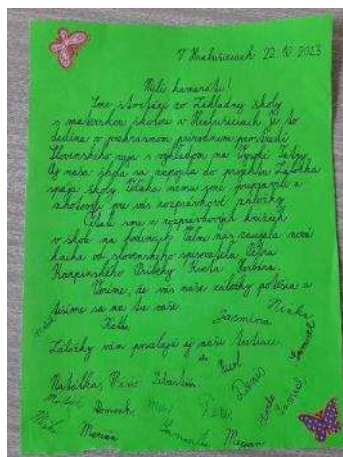 V Hrabušiciach 22.10.2023
Milí kamaráti!
Sme štvrtáci zo Základnej školy
s materskou školou v Hrabušiciach. Je to
dedina v prekrásnom prírodnom prostredí
Slovenského raja s výhľadom na Vysoké Tatry.
Aj naša škola sa zapojila do projektu Záložka
spája školy. Vďaka nemu sme pripravili a
zhotovili pre vás rozprávkové záložky.
Čítali sme v rozprávkových knihách
v škole na hodinách. Veľmi nás zaujala nová
kniha od slovenského spisovateľa Petra
Karpinského Príbehy Kveta Forbára.
Veríme, že vás naše záložky potešia a
tešíme sa na tie vaše.
Ninka
Jasmína
Záložky vám posielajú aj naši tretiaci.
Natálka Sebastián
Denis
Samuel
Dominika Max Peter
Marián Samantha Megan